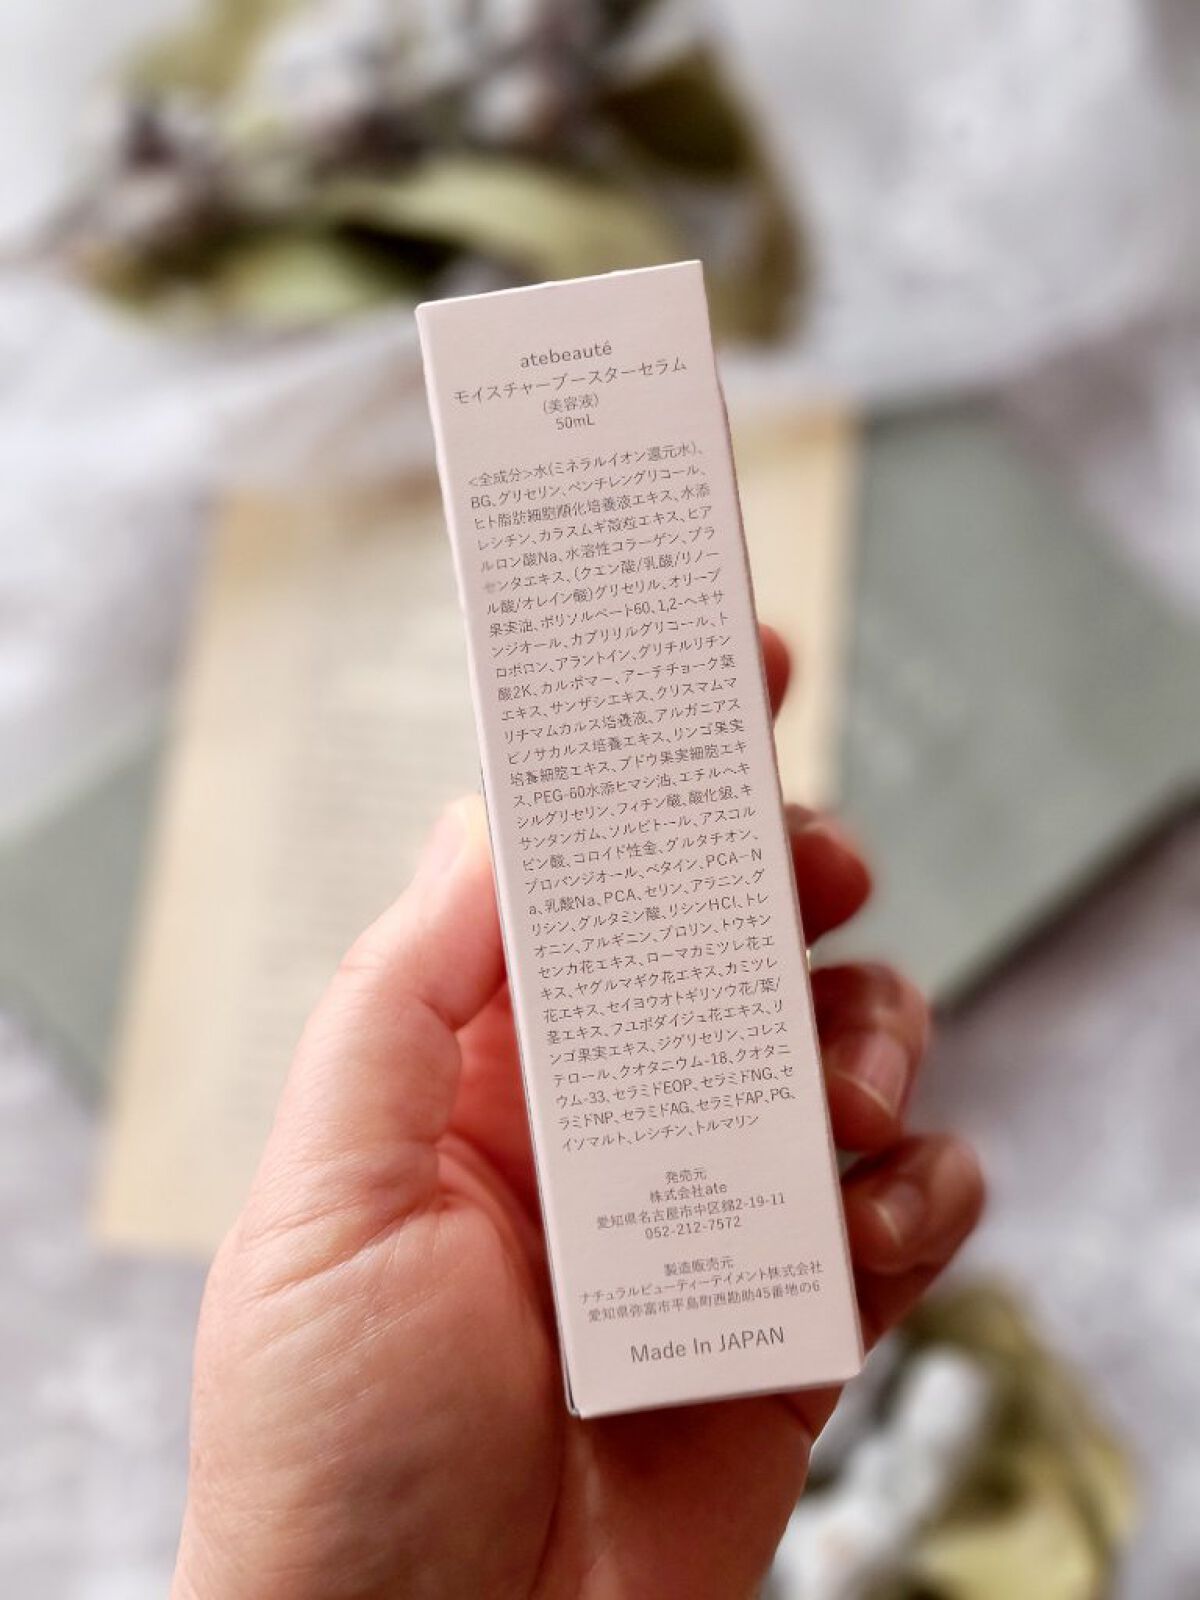 atebeauté
モイスチャーブースターセラム
(美容液)
50mL
<全成分>水(ミネラルイオン還元水)、
BG、グリセリン、ペンチレングリコール、
ヒト脂肪細胞順化培養液エキス、水添
レシチン、カラスムギ穀粒エキス、ヒア
ルロン酸Na、水溶性コラーゲン、プラ
センタエキス、(クエン酸/乳酸/リノー
ル酸/オレイン酸)グリセリル、オリーブ
果実油、ポリソルベート60、1,2-ヘキサ
ンジオール、カプリリルグリコール、ト
ロポロン、アラントイン、グリチルリチン
酸2K、カルボマー、アーチチョーク葉
エキス、サンザシエキス、クリスマムマ
リチマムカルス培養液、アルガニアス
ピノサカルス培養エキス、リンゴ果実
培養細胞エキス、ブドウ果実細胞エキ
ス、PEG-60水添ヒマシ油、エチルヘキ
シルグリセリン、フィチン酸、酸化銀、キ
サンタンガム、ソルビトール、アスコル
ビン酸、コロイド性金、グルタチオン、
プロパンジオール、ベタイン、PCA-N
a、乳酸Na、PCA、セリン、アラニン、グ
リシン、グルタミン酸、リシンHCl、トレ
オニン、アルギニン、プロリン、トウキン
センカ花エキス、ローマカミツレ花エ
キス、ヤグルマギク花エキス、カミツレ
花エキス、セイヨウオトギリソウ花/葉/
茎エキス、フユボダイジュ花エキス、リ
ンゴ果実エキス、ジグリセリン、コレス
テロール、クオタニウム-18、クオタニ
ウム-33、セラミドEOP、セラミドNG、セ
ラミドNP、セラミドAG、セラミドAP、PG、
イソマルト、レシチン、トルマリン
発売元
株式会社ate
愛知県名古屋市中区錦2-19-11
052-212-7572
製造販売元
ナチュラルビューティーテイメント株式会社
愛知県弥富市平島町西勘助45番地の6
Made In JAPAN